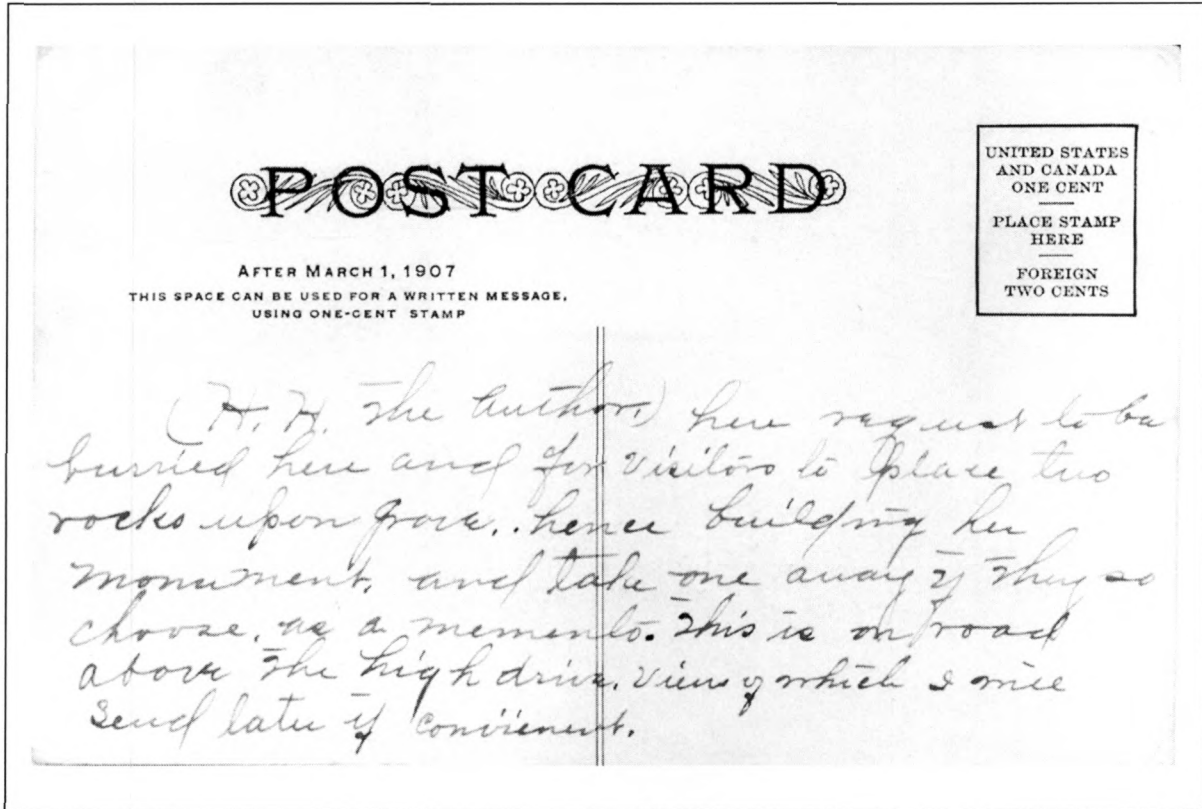 POST CARD
AFTER MARCH 1, 1907
THIS SPACE CAN BE USED FOR A WRITTEN MESSAGE,
USING ONE-CENT STAMP
UNITED STATES
AND CANADA
ONE CENT
PLACE STAMP
HERE
FOREIGN
TWO CENTS
(H. H. The Author.) here request to be
burried here and for Visitors to place two
rocks upon grave. hence building her
monument, and take one away if they so
choose, as a memento. This is on road
above The high drive. View of which I will
send later if convienent.